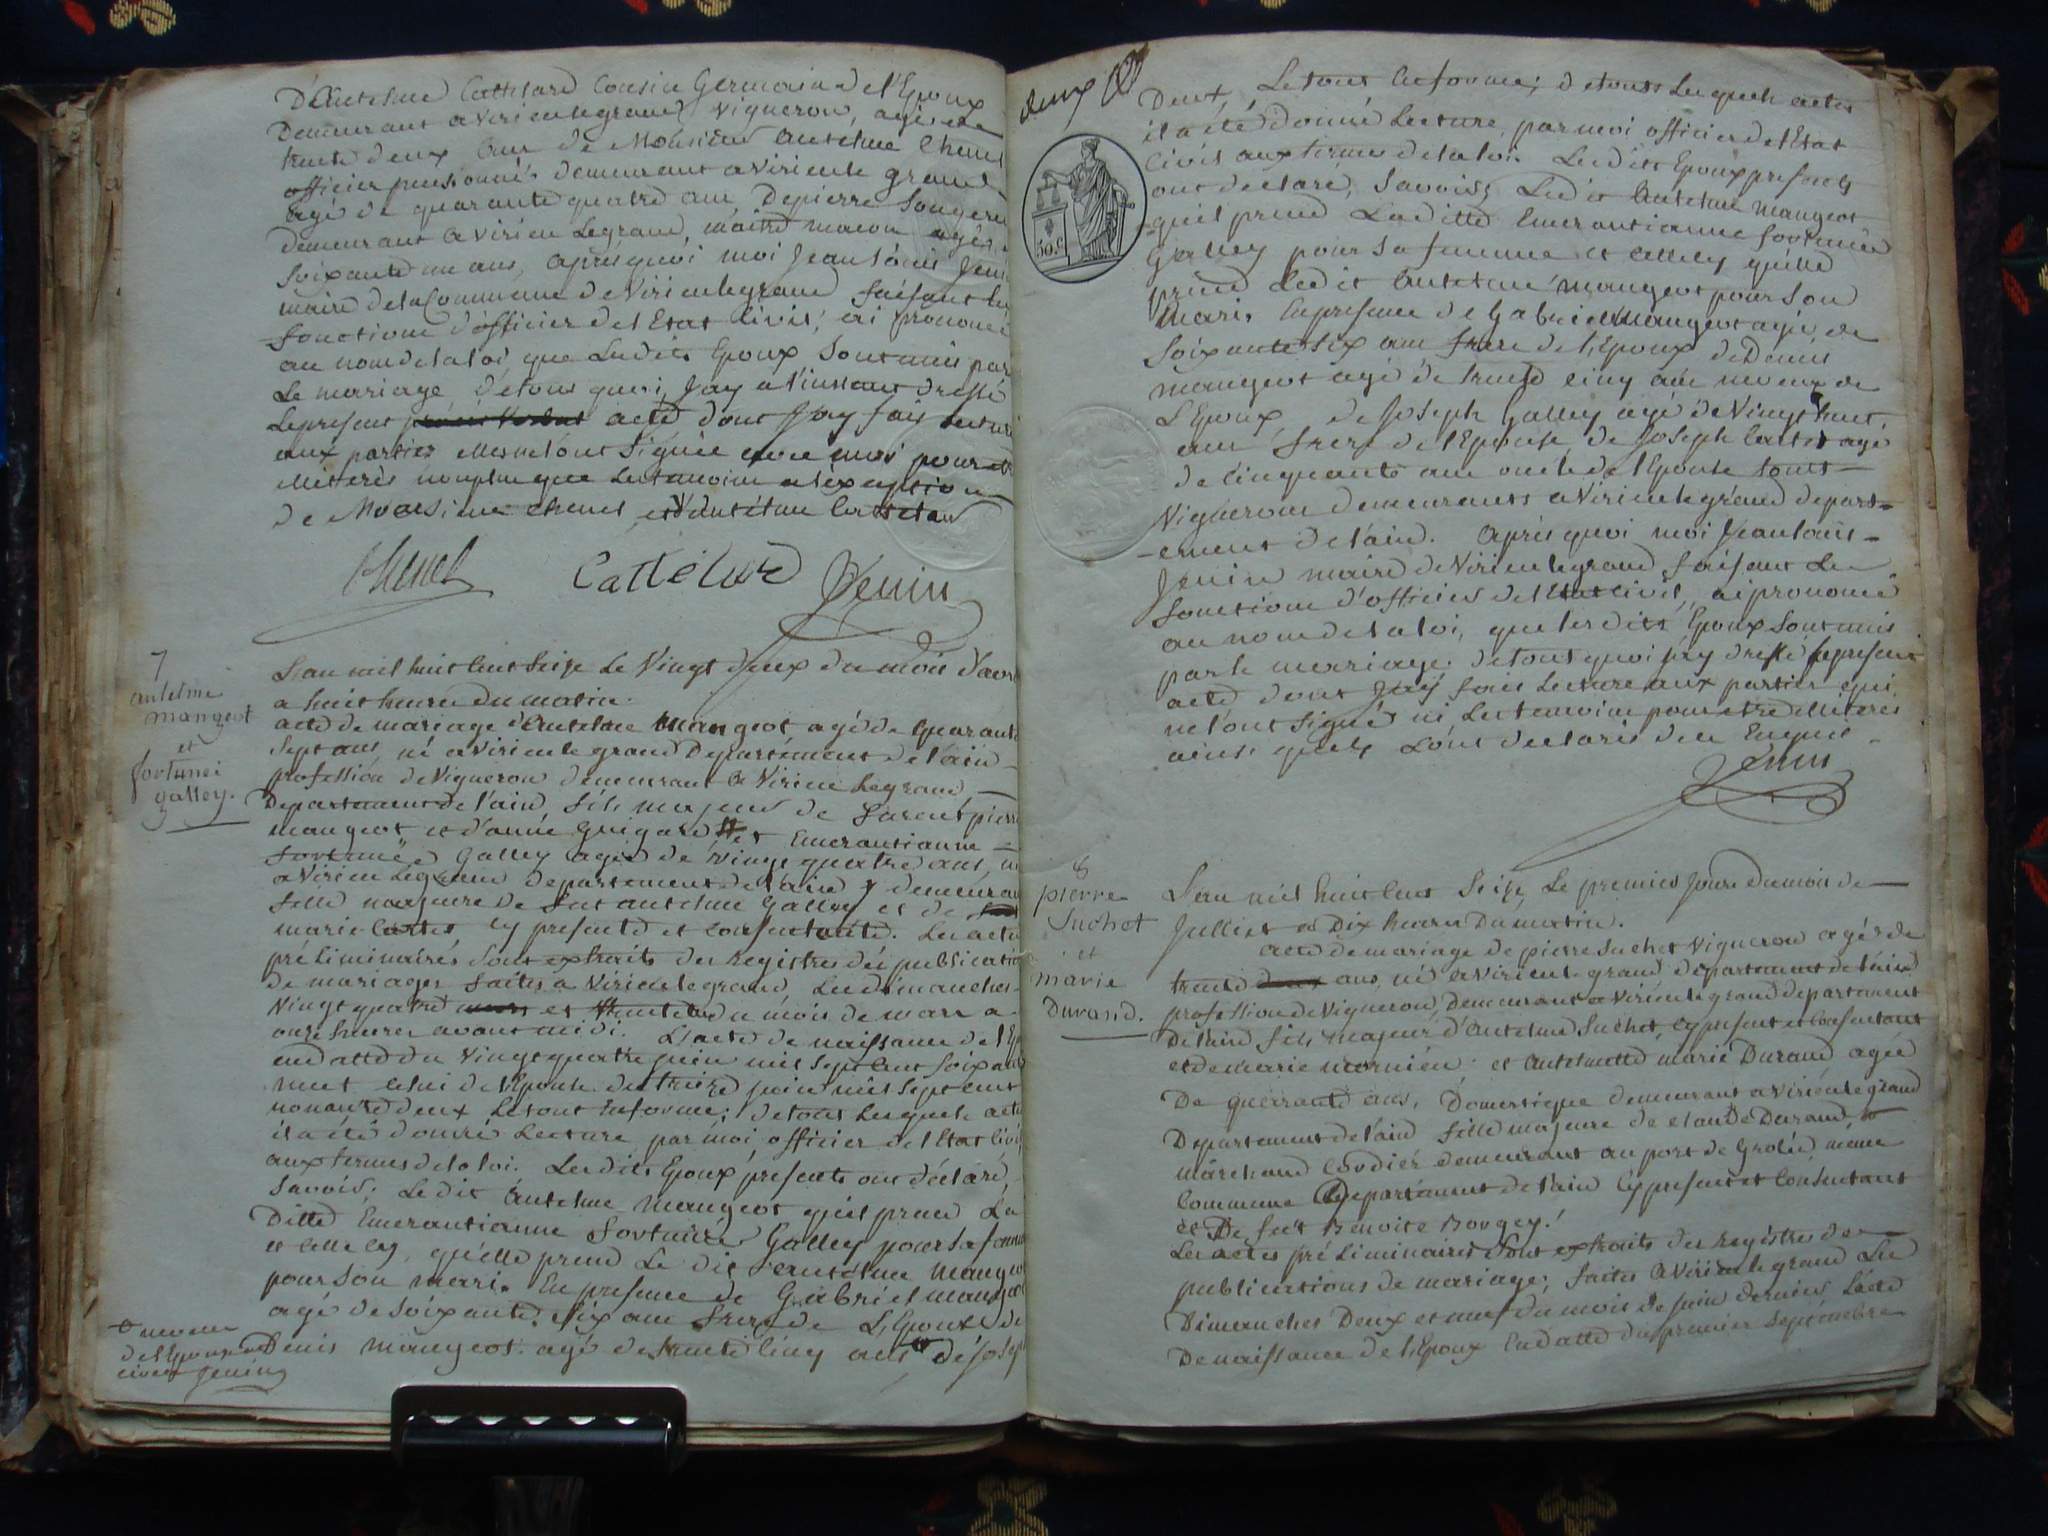 D'Antelme Cattelard Cousin Germain de l'Epoux
Demeurant a virieu le grand, vigneron, agé de
trente deux ans de Monsieur Antelme Chenel
officier pensionné demeurant a virieu le grand
agé de quarante quatre ans, De pierre
demeurant a virieu Le grand, maître macon agé de
soixante un ans, après quoi moi Jean Louis Jenin
maire de la Commune de Virieu le grand faisant les
fonctions d'officier de l'Etat Civil, ai prononcé
au nom de la loi que Lesdits Epoux sont unis par
Le mariage, de tous quoi, J'ay a l'instant dressé
Le present acte dont J'ay fait lecture
aux parties elles ne l'ont signée avec moi pour etre
illiterés non plus que Les temoins a l'exception
de Monsieur chenel et d'antelme Cattelard
Chenel Cattelard Jenin
7
antelme
mangeot
et
fortunée
galley.
L'an mil huit cent seize Le Vingt deux du mois d'avril
a huit heures du matin.
acte de mariage d'Antelme mangeot agé de quarante
sept ans, né a Virieu le grand Département de l'ain
profession de Vigneron demeurant a Virieu Le grand
Departement de l'ain, fils majeur de Laurent pierre
mangeot et d'anne Guigard et Emerantianne
fortunée Galley agée de vingt quatre ans, née
a Virieu Le grand departement de l'ain y demeurant
fille majeure de feu antelme Galley et de
marie Cartet cy presente et consentante. Les actes
préliminaires sont extraits des Registres des publications
de mariages faites a Virieu le grand Les dimanches
Vingt quatre et trente du mois de mars a
onze heures avant midi. L'acte de naissance de l'Epoux
en datte du Vingt quatre juin mil sept cent soixante
neuf celui de l'Epouse du treize juin mil sept cent
nonante deux Le tout En forme; de tous Lesquels actes
il a été donné Lecture par moi officier de l'Etat civil
aux termes de la loi. Lesdits Epoux présents ont déclaré,
Savoir; Le dit Antelme mangeot qu'il prend La
Ditte Emerantianne Fortunée Galley pour sa femme
et celle cy, qu'elle prend Le dit antelme mangeot
pour son mari. En presence de Gabriel mangeot
agé de soixante six ans frere de L'Epoux de
Denis mangeot agé de trente cinq ans de Joseph
neveu
de l'Epoux
Jenin
deux
50.C
Deux, Le tout En forme; de tous Lesquels actes
il a été donné Lecture, par moi officier de l'Etat
Civil aux termes de la loi. Lesdits Epoux presents
ont déclaré, Savoir; Ledit Antelme mangeot
qu'il prend Laditte Emerantianne fortunée
Galley pour sa femme et celle cy qu'elle
prend Ledit Antelme mangeot pour son
Mari. En presence de Gabriel mangeot agé de
soixante six ans frere de l'Epoux de Denis
mangeot agé de trente cinq ans neveux de
L'Epoux, de Joseph Galley agé de Vingt huit
ans frere de l'Epouse, de Joseph Cartet agé
de Cinquante ans oncle de l'Epouse tous
Vignerons demeurants a Virieu le grand depart-
-ement de l'ain. Après quoi moi Jean Louis
Jenin maire de Virieu le grand faisant Les
fonctions d'officier de l'Etat civil, ai prononcé
au nom de la loi, que lesdits Epoux sont unis
par le mariage. de tout quoi j'ay dressé le present
acte dont j'ay fait Lecture aux parties qui
ne l'ont signé ni Les temoins pour etre illiterés
ainsi qu'ils L'ont declarés de ce Enquis
Jenin
8
pierre
Suchet
et
marie
Durand.
L'an mil huit cent Seize Le premier Jour du mois de
Julliet a Dix heures Du matin.
acte de mariage de pierre Suchet Vigneron agé de
trente deux ans, né a Virieu le grand département de l'ain
profession de Vigneron, Demeurant a Virieu le grand departement
De l'ain fils majeur d'Antelme Suchet cy present et Consentant
et de marie mornieu: et Antelmette marie Durand agée
De quarante ans, Domestique demeurant a Virieu le grand
Departement de l'ain fille majeure de claude Durand,
marchand Cordier demeurant au port de Grolée même
Commune Departement de l'ain cy present et Consentant
et De feue Benoite Rougey.
Les actes préliminaires sont extraits des Registres de
publications de mariage; faites a Virieu le grand Les
Dimanches Deux et neuf du mois de Juin dernier, L'acte
De naissance de l'Epoux En datte du premier Septembre